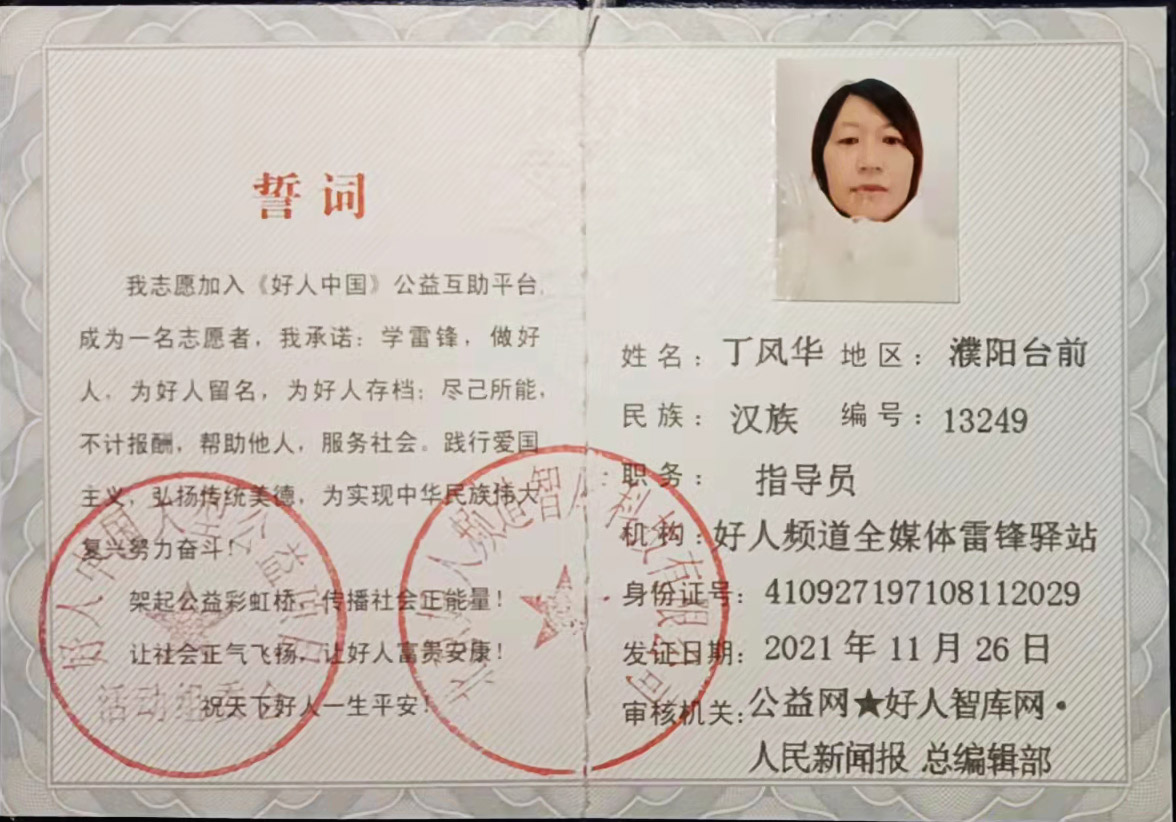 誓词
我志愿加入《好人中国》公益互助平台,
成为一名志愿者，我承诺：学雷锋，做好
人，为好人留名，为好人存档；尽己所能，
不计报酬，帮助他人，服务社会。践行爱国
主义，弘扬传统美德，为实现中华民族伟大
复兴努力奋斗！
架起公益彩虹桥，传播社会正能量！
让社会正气飞扬，让好人富贵安康！
祝天下好人一生平安！
好人中国大型公益项目
活动组委会
人频道智库科技有限公司
姓名：丁风华 地区：濮阳台前
民族：汉族 编号：13249
职务：指导员
机构：好人频道全媒体雷锋驿站
身份证号：410927197108112029
发证日期：2021年11月26日
审核机关：公益网★好人智库网·
人民新闻报 总编辑部